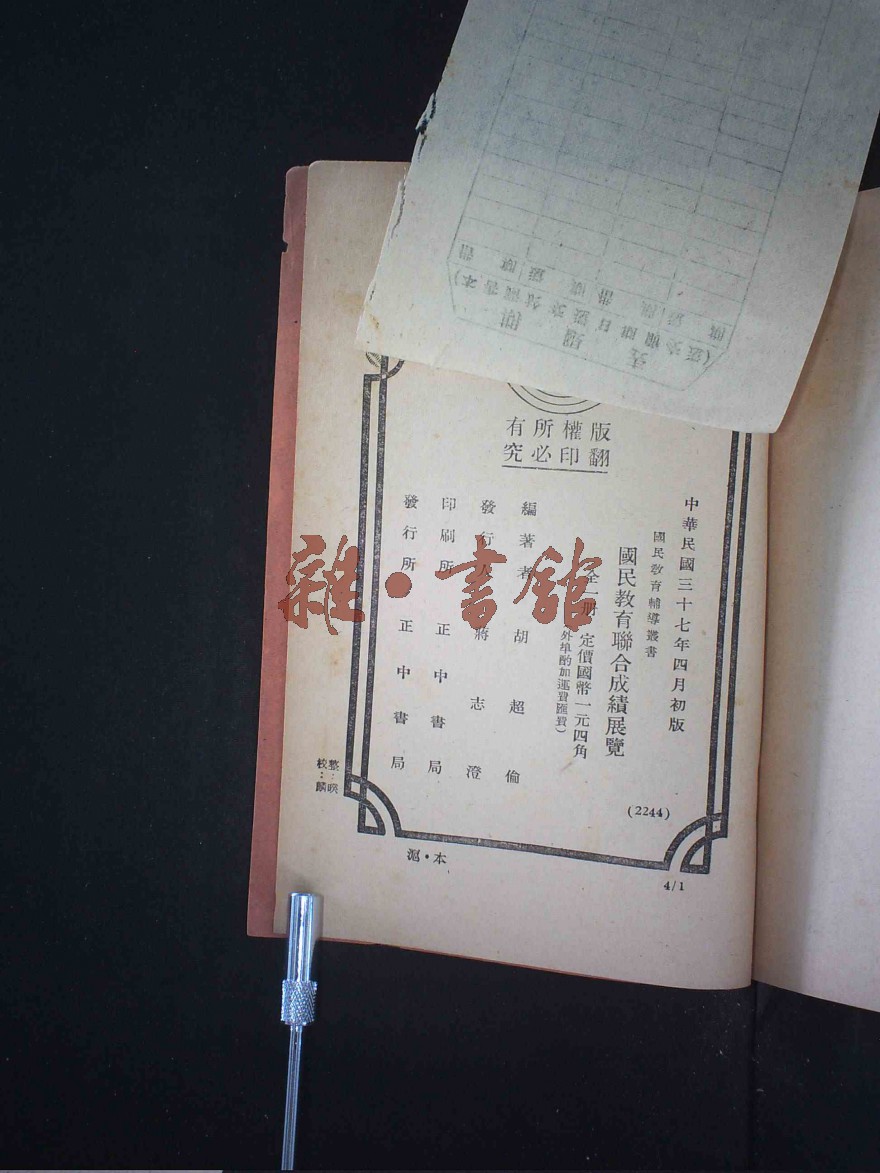 版權所有
翻印必究
中華民國三十七年四月初版
國民教育輔導叢書
國民教育聯合成績展覽
全一册 定價國幣一元四角
外埠酌加運費匯費)
(2244)
編著者 胡超倫
發行人 蔣志澄
印刷所 正中書局
發行所 正中書局
整:
校:麟
滬·本
4/1
雜·書館